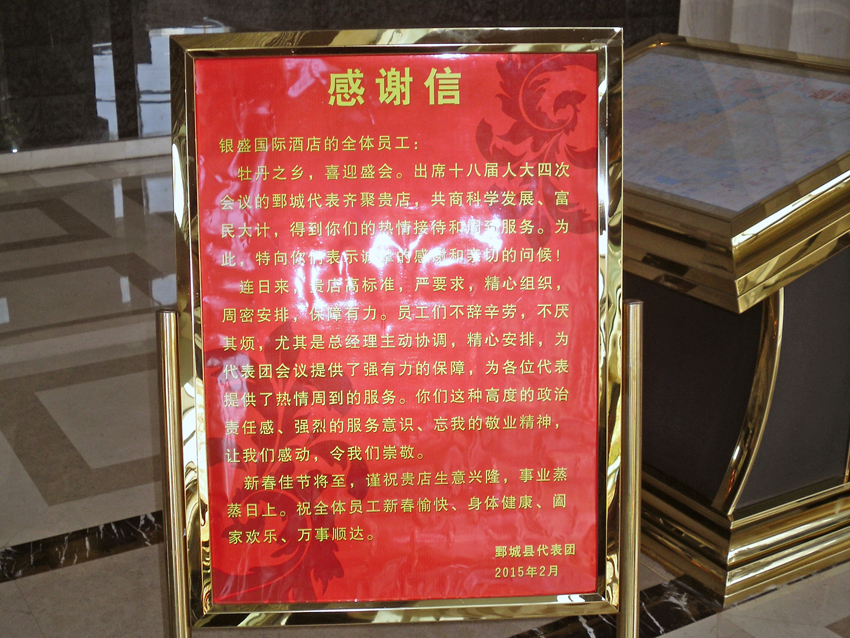 感谢信
银盛国际酒店的全体员工：
牡丹之乡，喜迎盛会。出席十八届人大四次
会议的鄄城代表齐聚贵店，共商科学发展、富
民大计，得到你们的热情接待和周到服务。为
此，特向你们表示诚挚的感谢和亲切的问候！
连日来，贵店高标准，严要求，精心组织，
周密安排，保障有力。员工们不辞辛劳，不厌
其烦，尤其是总经理主动协调，精心安排，为
代表团会议提供了强有力的保障，为各位代表
提供了热情周到的服务。你们这种高度的政治
责任感、强烈的服务意识、忘我的敬业精神，
让我们感动，令我们崇敬。
新春佳节将至，谨祝贵店生意兴隆，事业蒸
蒸日上。祝全体员工新春愉快、身体健康、阖
家欢乐、万事顺达。
鄄城县代表团
2015年2月